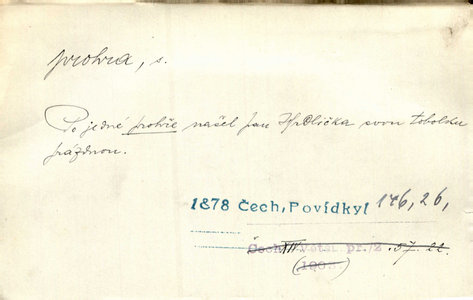 prohra, s.
Po jedné prohře našel pan Hrdlička svou tobolku
prázdnou.
1878 Čech, Povídky I 146, 26,
Čech, III. pr. 2. 57. 22.
(190